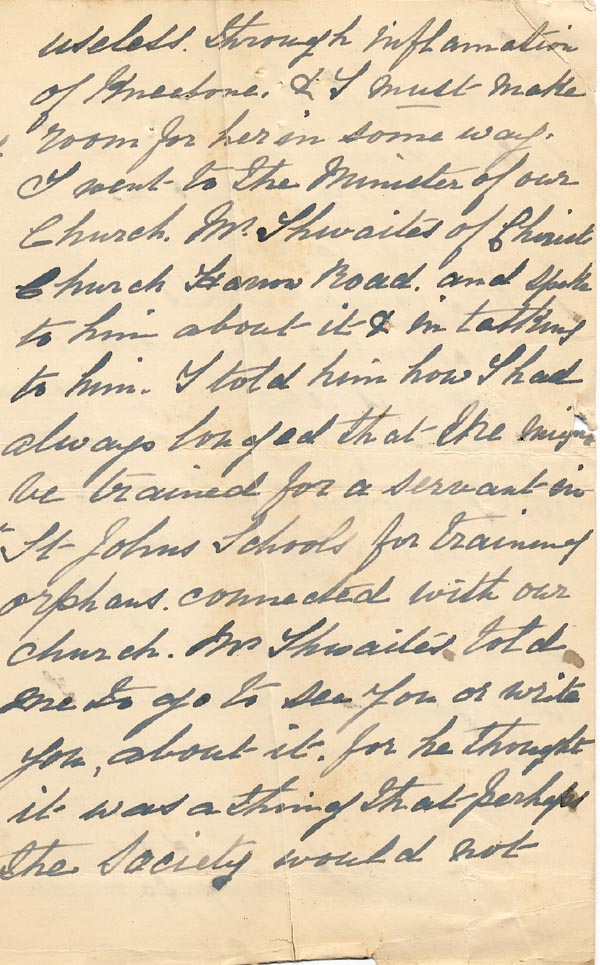 useless. through inflamation
of Kneebone. & I must make
room for her in some way.
I went to the Minister of our
Church. Mr. Thwaites of Christ
Church Harrow Road. and spoke
to him about it & in talking
to him. I told him how I had
always longed that she might
be trained for a servant in
"St Johns Schools for training
orphans. connected with our
church. Mr Thwaites told
me to go to see you or write
you, about it. for he thought
it was a thing that perhaps
the Society would not